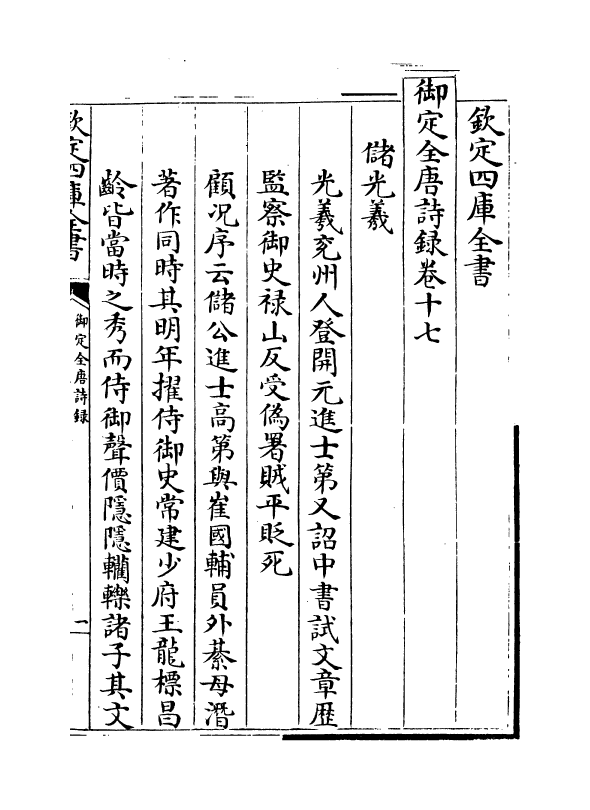 欽定四庫全書
御定全唐詩録卷十七
儲光羲
光羲兖州人登開元進士第又詔中書試文章歷
監察御史禄山反受偽署賊平貶死
顧况序云儲公進士高第與崔國輔員外綦母潛
著作同時其明年擢侍御史常建少府王龍標昌
齡皆當時之秀而侍御聲價隱隱轥轢諸子其文
欽定四庫全書
御定全唐詩録
一